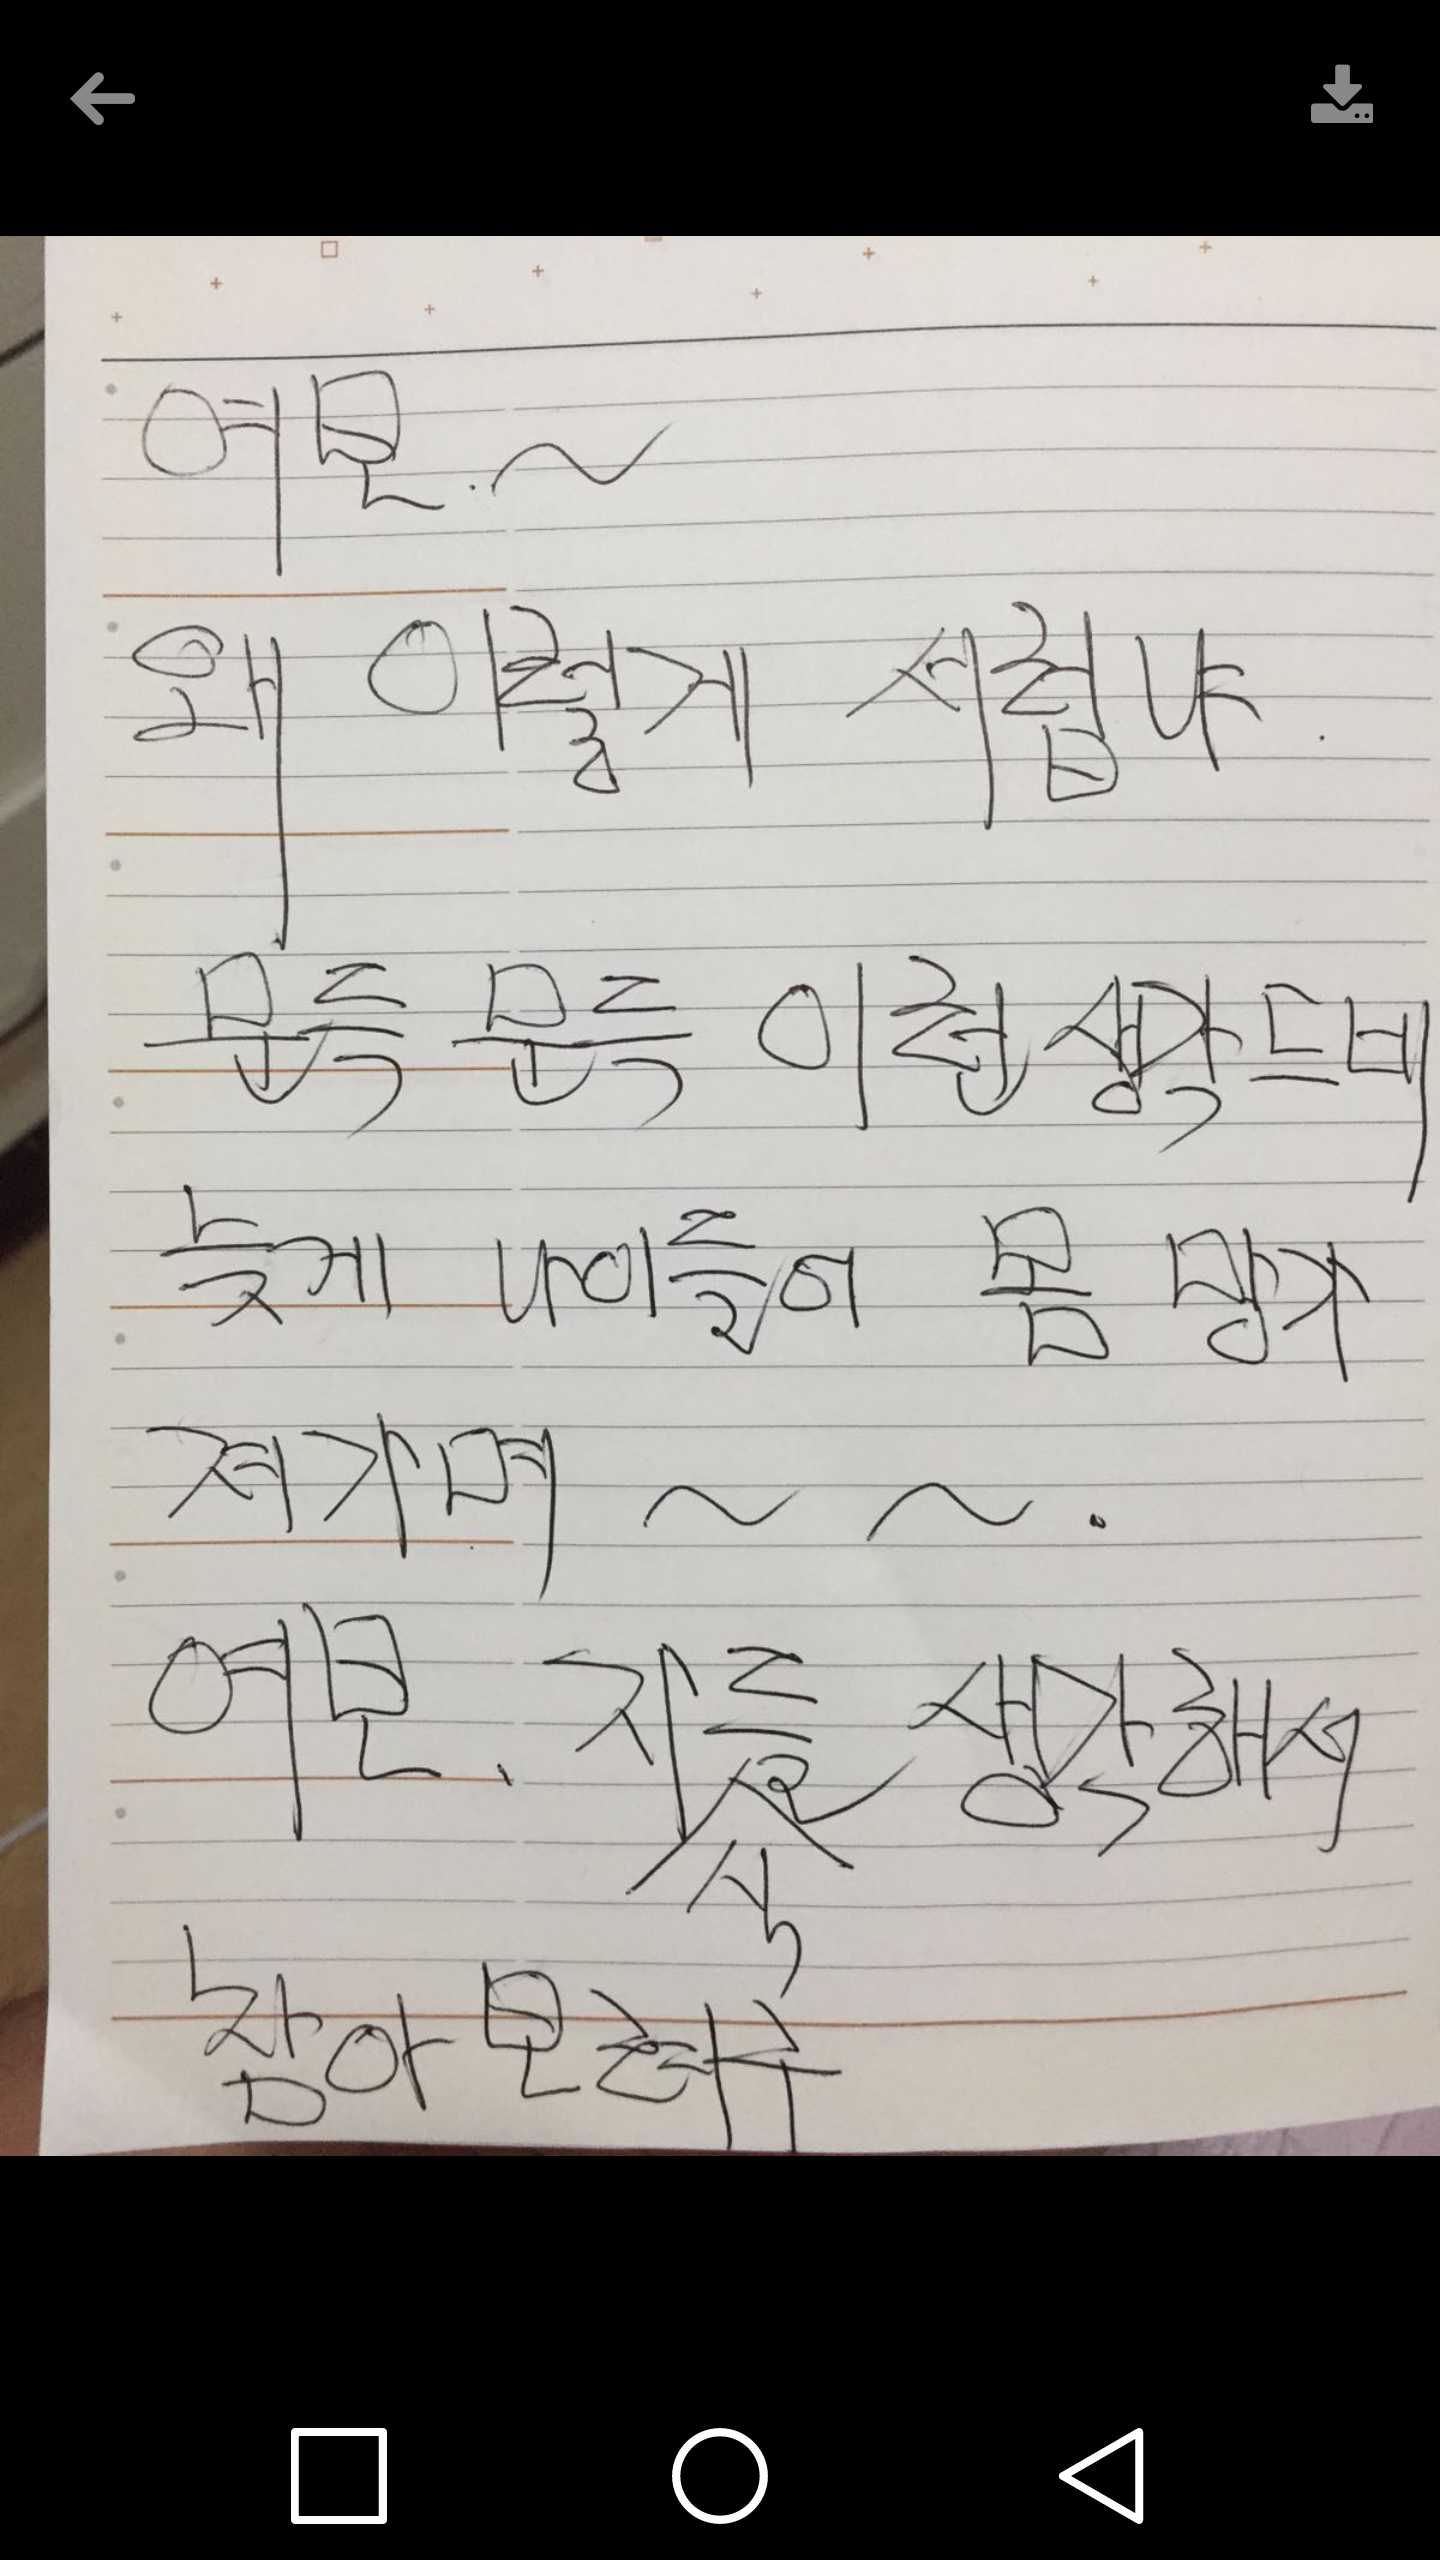 여보.~
왜 이렇게 서럽냐.
문득 문득 이런 생각 드네
늦게 나이들어 몸 망가
져가며 ~ ~.
여보. 자식들 생각해서
참아 보려구